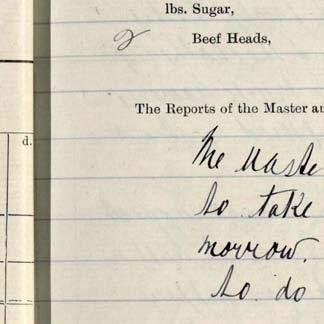 lbs. Sugar,
2 Beef Heads,
The Reports of the Master au
d.
The Maste
to take
morrow.
to do